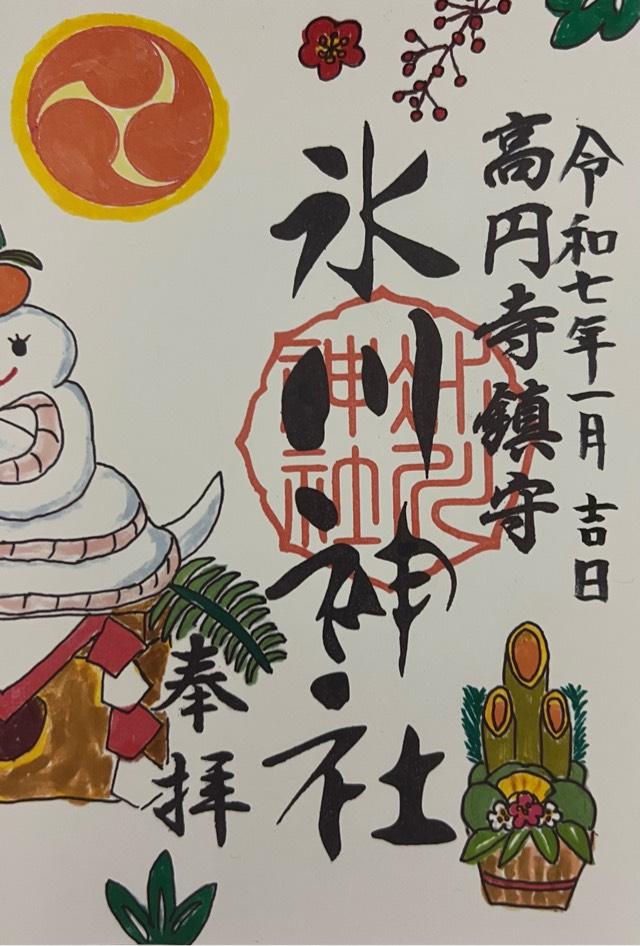 令和七年一月 吉日
高円寺鎮守
氷川神社
奉拝
氷川
神社